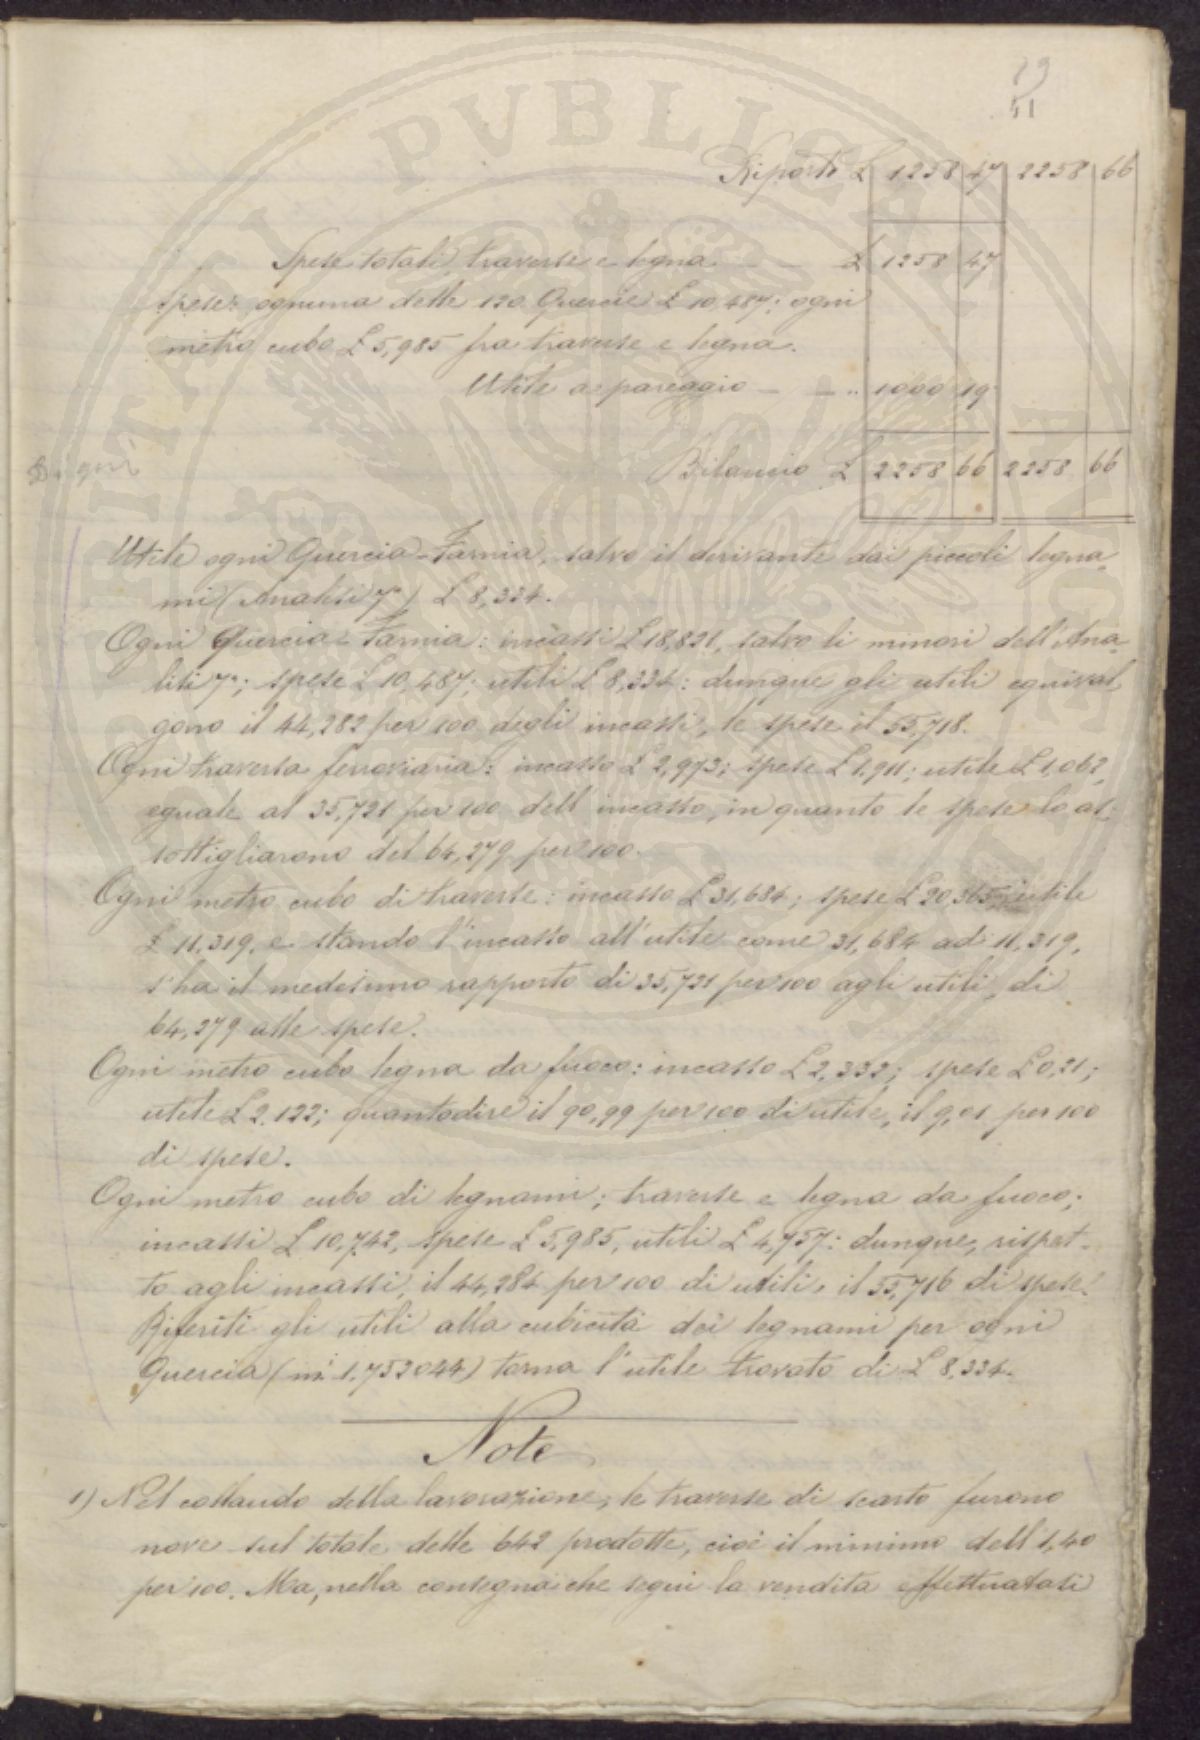 29
41
Riporti £ 1258 47 2258 66
Spese totali, traverse e legna £ 1258 47
Spese: ognuna delle 120 Quercie £ 10,487; ogni
metro cubo £ 5,985 fra traverse e legna.
Utile a pareggio — — „ 1000 19
Bilancio £ 2258 66 2258 66
Utile ogni Quercia-Farnia, salvo il derivante dai piccoli legna-
mi (Analisi 7ª) £ 8,334.
Ogni Quercia-Farnia: incassi £ 18,821, salvo li minori dell'Ana-
lisi 7ª; spese £ 10,487; utili £ 8,334: dunque gli utili equival-
gono il 44,282 per 100 degli incassi, le spese il 55,718.
Ogni traversa ferroviaria: incasso £ 2,973; spese £ 1,911; utile £ 1,062,
eguale al 35,721 per 100 dell'incasso, in quanto le spese lo as-
sottigliarono del 64,279 per 100.
Ogni metro cubo di traverse: incasso £ 31,684; spese £ 20,365; utile
£ 11,319, e stando l'incasso all'utile come 31,684 ad 11,319,
s'ha il medesimo rapporto di 35,721 per 100 agli utili, di
64,279 alle spese.
Ogni metro cubo legna da fuoco: incasso £ 2,332; spese £ 0,21;
utile £ 2,122; quantodire il 90,99 per 100 di utile, il 9,01 per 100
di spese.
Ogni metro cubo di legnami; traverse e legna da fuoco;
incassi £ 10,742, spese £ 5,985, utili £ 4,757: dunque, rispet-
to agli incassi, il 44,284 per 100 di utili, il 55,716 di spese.
Riferiti gli utili alla cubicità dei legnami per ogni
Quercia (m. 1,752044) torna l'utile trovato di £ 8,334.
Note
1) Nel collaudo della lavorazione, le traverse di scarto furono
nove sul totale delle 642 prodotte, cioè il minimo dell'1,40
per 100. Ma, nella consegna che seguì la vendita effettuatasi